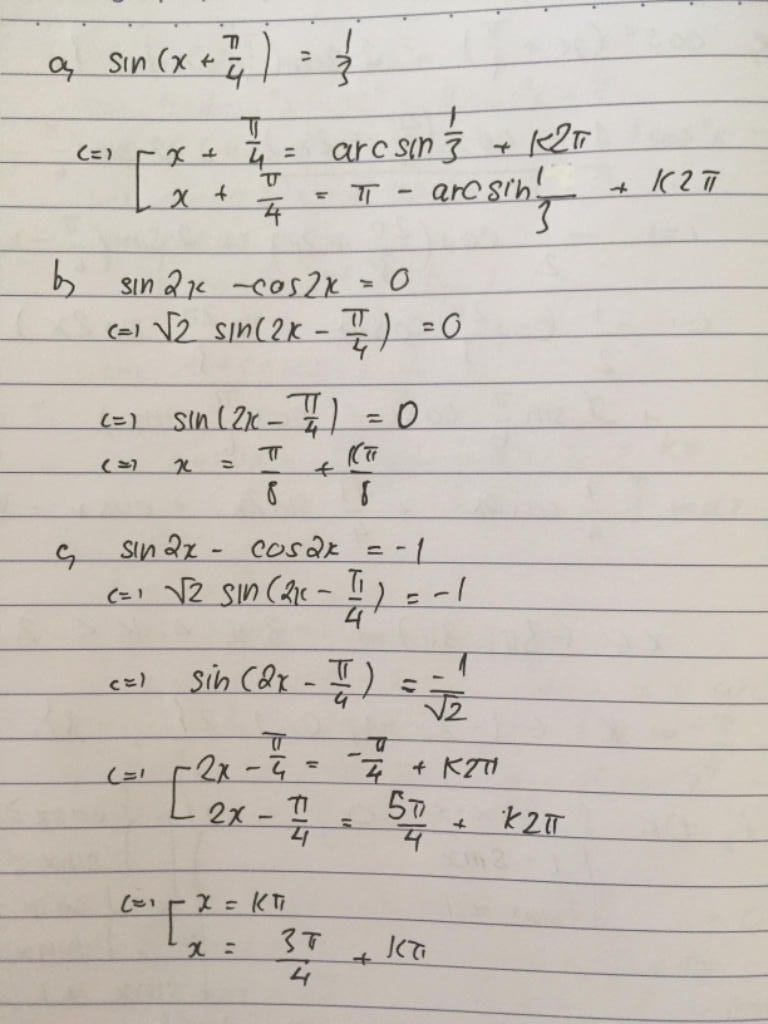 a, sin(x + π/4) = 1/3
<=> [ x + π/4 = arcsin 1/3 + K2π
x + π/4 = π - arcsin 1/3 + K2π
b, sin2x - cos2x = 0
<=> √2 sin(2x - π/4) = 0
<=> sin(2x - π/4) = 0
<=> x = π/8 + Kπ/8
c, sin2x - cos2x = -1
<=> √2 sin(2x - π/4) = -1
<=> sin(2x - π/4) = -1/√2
<=> [ 2x - π/4 = -π/4 + K2π
2x - π/4 = 5π/4 + K2π
<=> [ x = Kπ
x = 3π/4 + Kπ